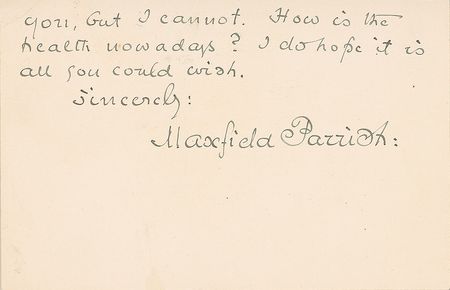 you, but I cannot. How is the
health nowadays? I do hope it is
all you could wish.
Sincerely:
Maxfield Parrish: